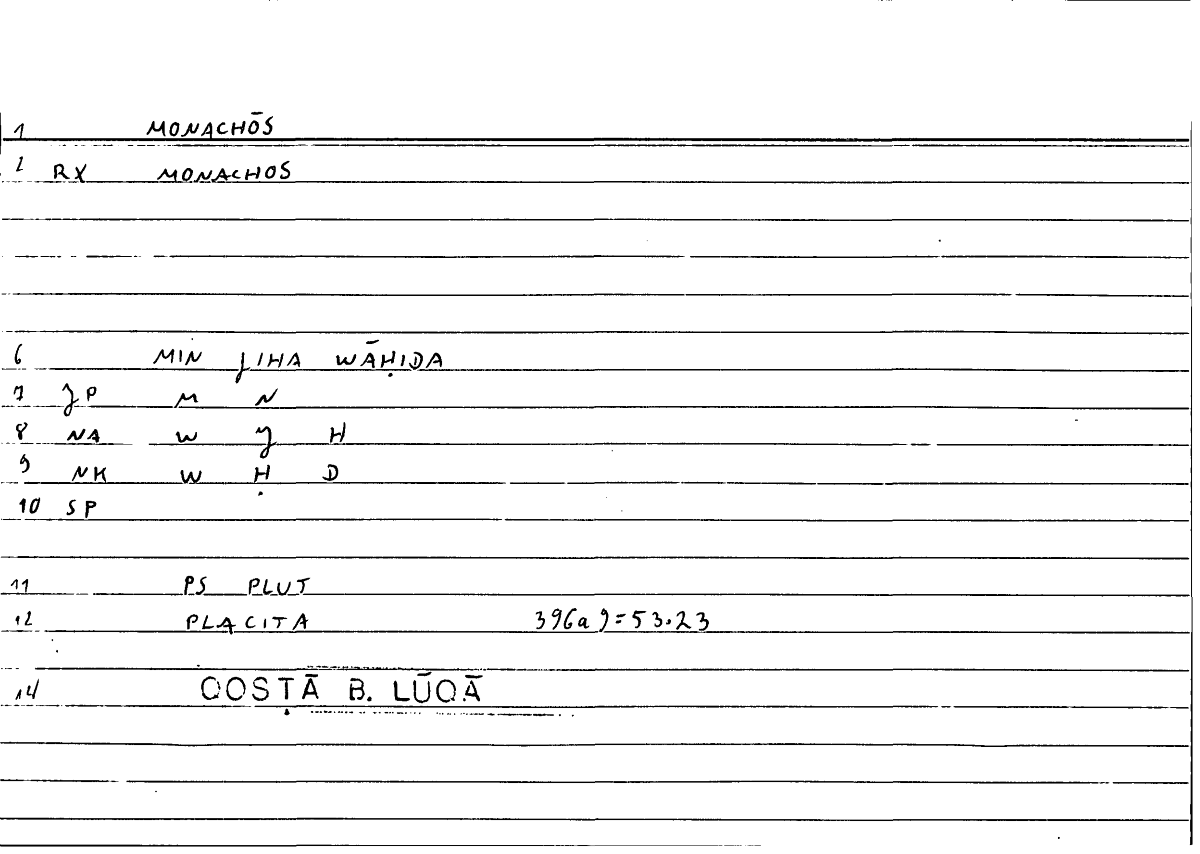 1 MONACHŌS
2 RX MONACHOS
6 MIN JIHA WĀḤIDA
7 JP M N
8 NA W J H
9 NK W Ḥ D
10 SP
11 PS PLUT
12 PLACITA 396a9=53.23
14 QOSṬĀ B. LŪQĀ